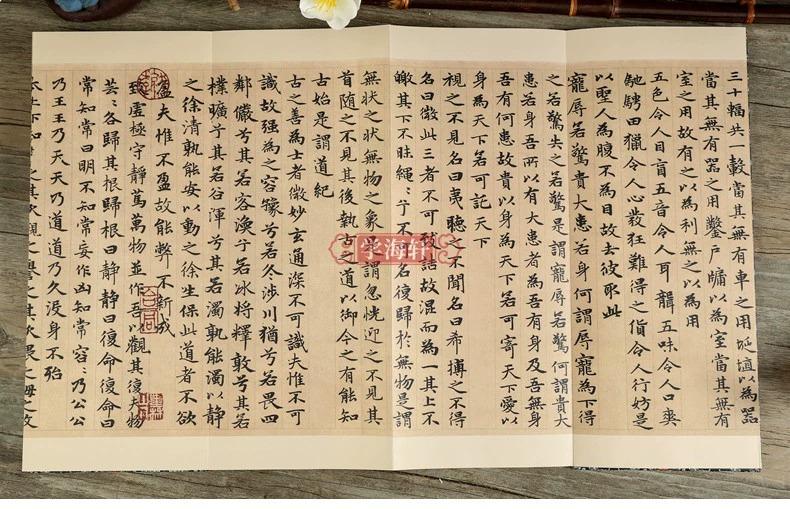 三十輻共一轂當其無有車之用埏埴以為器
當其無有器之用鑿戶牖以為室當其無有
室之用故有之以為利無之以為用
五色令人目盲五音令人耳聾五味令人口爽
馳騁田獵令人心發狂難得之貨令人行妨是
以聖人為腹不為目故去彼取此
寵辱若驚貴大患若身何謂辱寵為下得
之若驚失之若驚是謂寵辱若驚何謂貴大
患若身吾所以有大患者為吾有身及吾無身
吾有何患故貴以身為天下若可寄天下愛以
身為天下若可託天下
視之不見名曰夷聽之不聞名曰希搏之不得
名曰微此三者不可致詰故混而為一其上不
皦其下不昧繩〻兮不可名復歸於無物是謂
無狀之狀無物之象是謂忽恍迎之不見其
首隨之不見其後執古之道以御今之有能知
古始是謂道紀
古之善為士者微妙玄通深不可識夫惟不可
識故强為之容豫兮若冬涉川猶兮若畏四
鄰儼兮其若容渙兮若冰將釋敦兮其若
樸曠兮其若谷渾兮其若濁孰能濁以靜
之徐清孰能安以動之徐生保此道者不欲
盈夫惟不盈故能弊不新成
致虛極守靜篤萬物並作吾以觀其復夫物
芸〻各歸其根歸根曰靜靜曰復命復命曰
常知常曰明不知常妄作凶知常容〻乃公公
乃王王乃天天乃道道乃久沒身不殆
太上下知之其次親之譽之其次畏之侮之故
学海轩